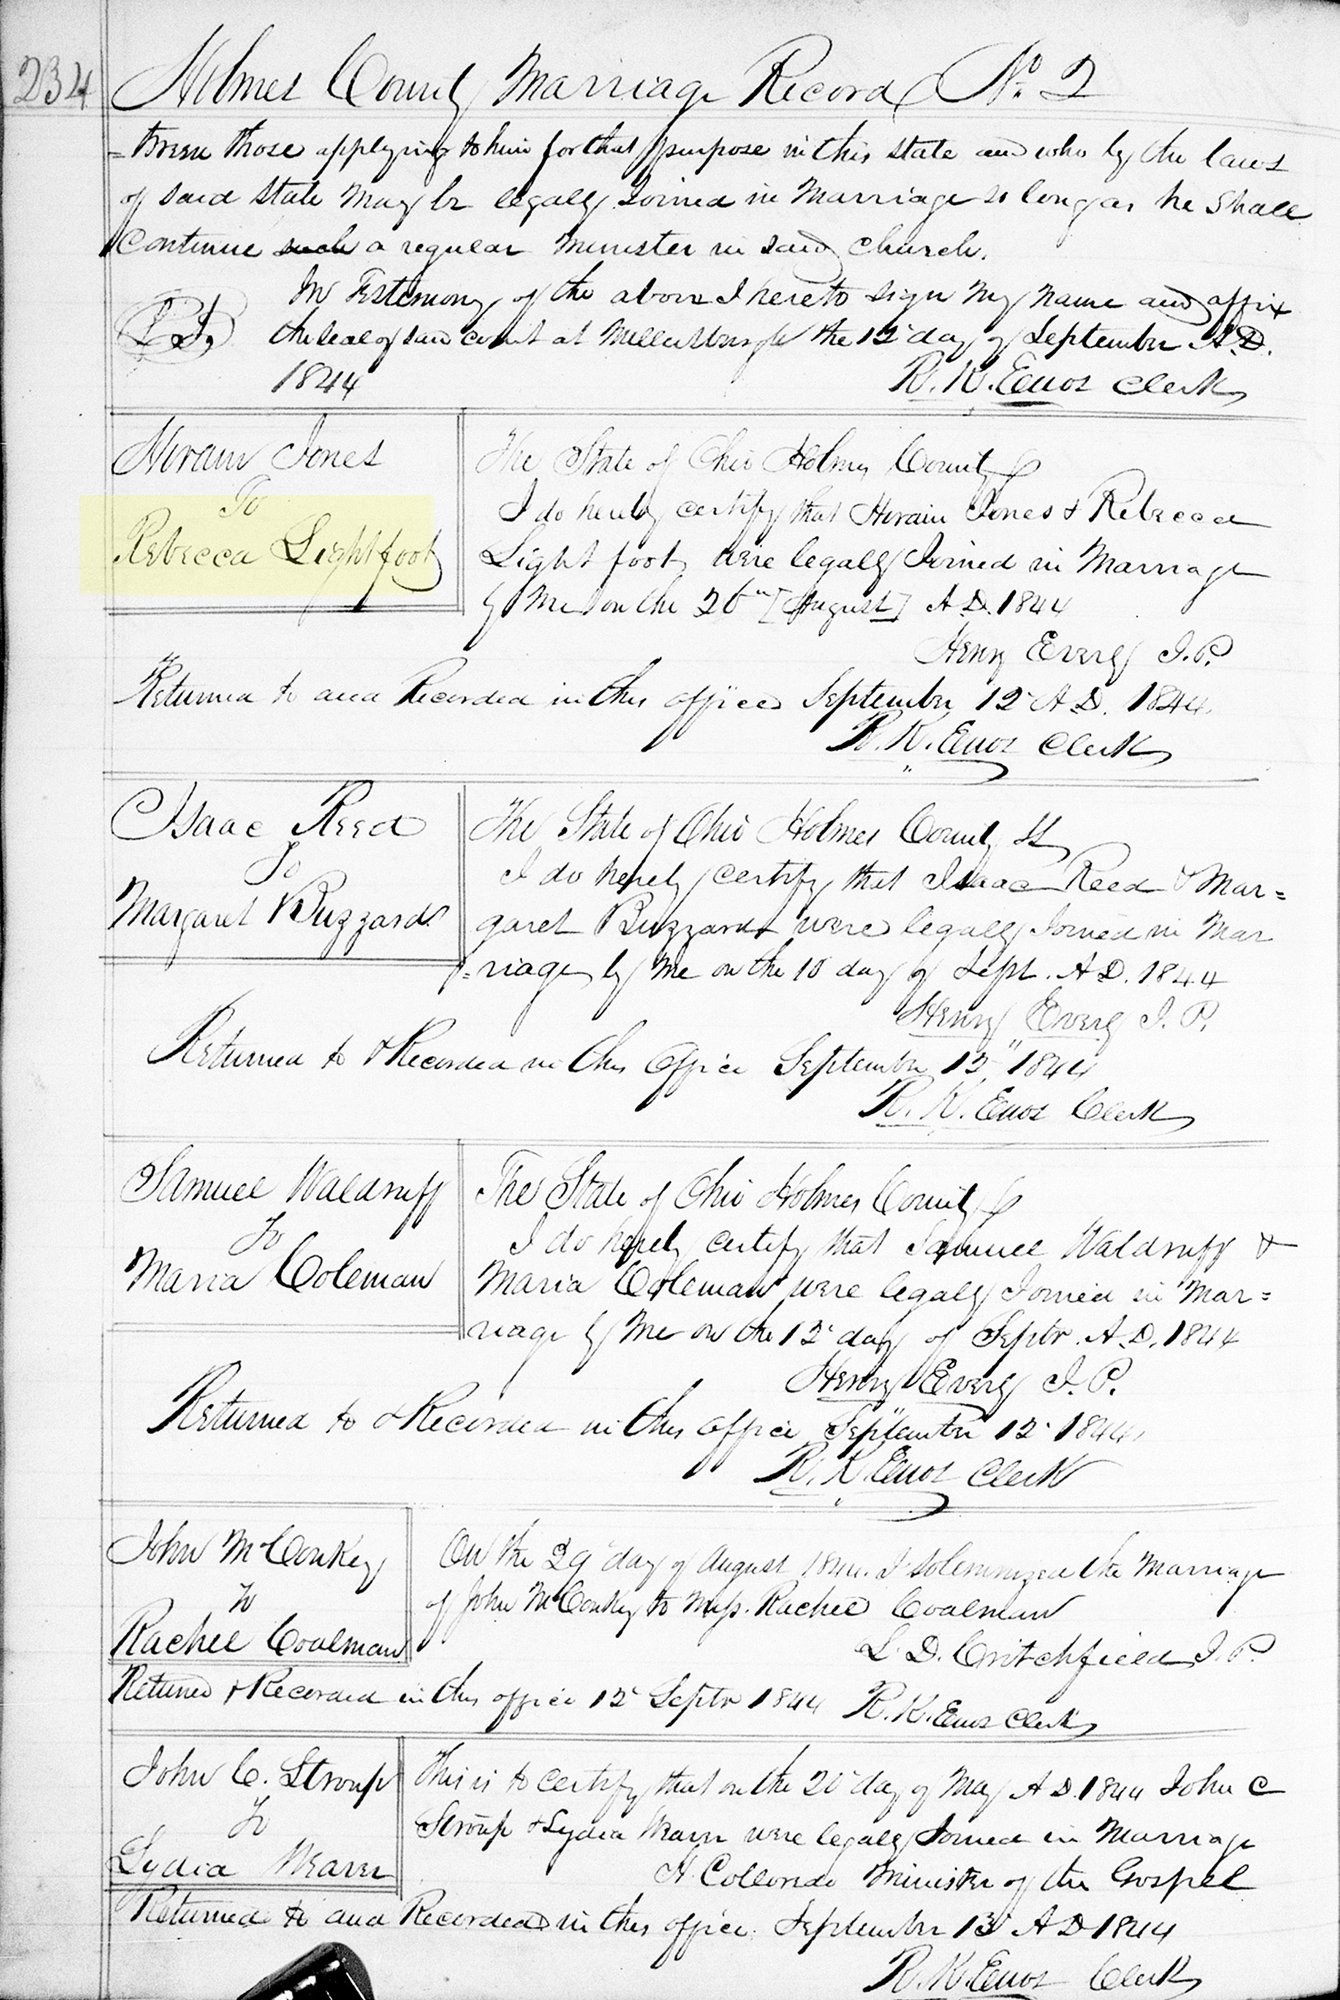 234
Holmes County Marriage Record No. 2
=tween those applying to him for that purpose in this state and who by the laws
of said state may be legally Joined in Marriage so long as he Shall
Continue such a regular Minister in said Church.
In Testimony of the above I hereto sign my name and affix
the seal of said court at Millersburgh the 12" day of September A.D.
1844 R. K. Enos Clerk
Hiram Jones
To
Rebecca Lightfoot
The State of Ohio Holmes County
I do hereby certify that Hiram Jones & Rebecca
Light foot were legally Joined in Marriage
by Me on the 26" [August] A.D. 1844
Henry Everly J.P.
Returned to and Recorded in this office September 12" A.D. 1844.
R. K. Enos Clerk
Isaac Reed
To
Margaret Buzzard
The State of Ohio Holmes County SS
I do hereby certify that Isaac Reed & Mar=
garet Buzzard were legally Joined in Mar
=riage by Me on the 10 day of Sept. A.D. 1844
Henry Everly J. P.
Returned to & Recorded in this Office September 12" 1844
R. K. Enos Clerk
Samuel Waldruff
To
Maria Coleman
The State of Ohio Holmes County
I do hereby certify that Samuel Waldruff &
Maria Coleman were legally Joined in Mar=
riage by Me on the 12" day of Septr. A.D. 1844
Henry Everly J. P.
Returned to & Recorded in this office September 12" 1844.
R. K. Enos Clerk
John McConkey
To
Rachel Coalman
On the 29" day of August 1844. I solemnized the Marriage
of John McConkey to Miss. Rachel Coalman
L. D. Critchfield J. P.
Returned & Recorded in this office 12" Septr 1844 R. K. Enos Clerk
John C. Stroup
To
Lydia Weaver
This is to certify that on the 20" day of May A.D. 1844 John C
Stroup & Lydia were legally Joined in Marriage
Minister of the Gospel
Returned to and Recorded in this office. September 13" A D 1844
R. K. Enos Clerk